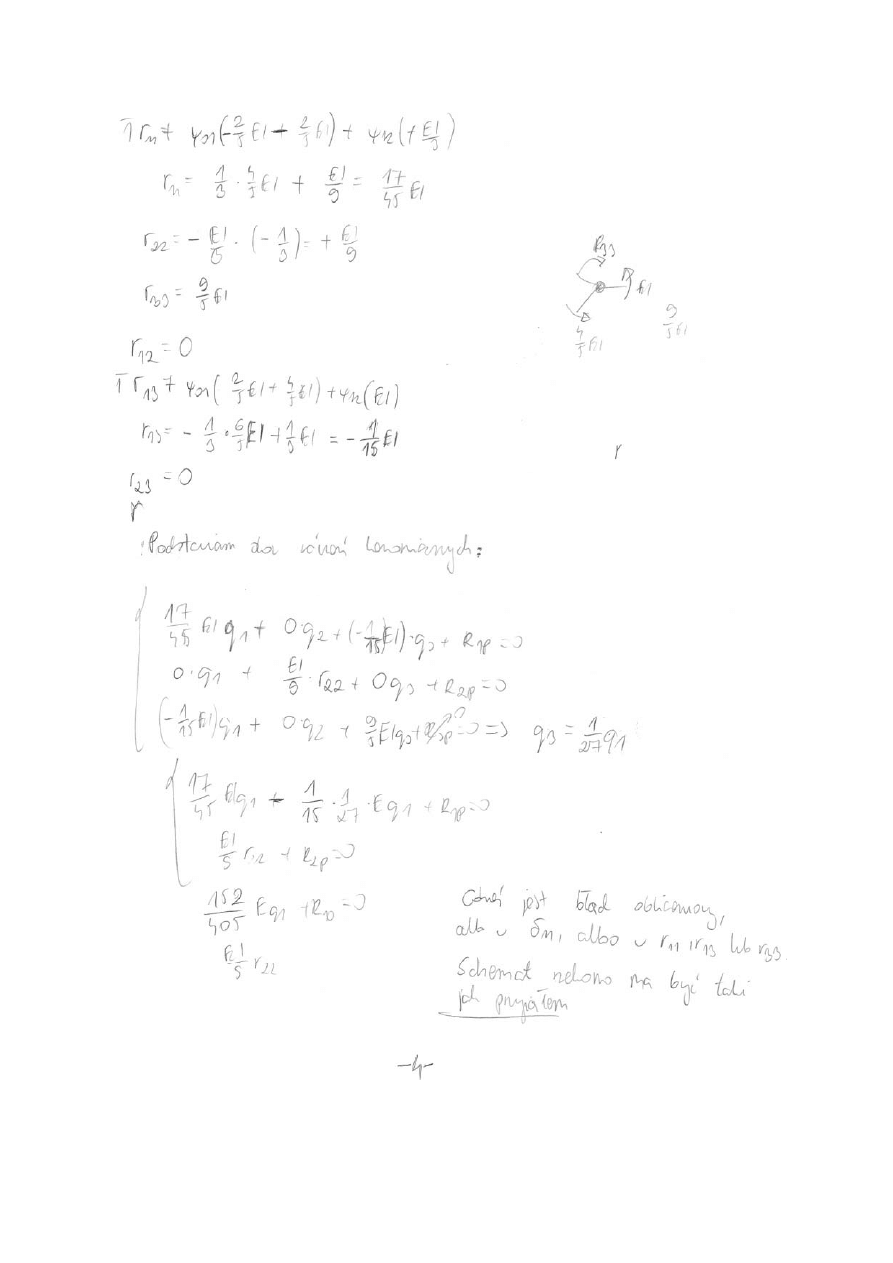 1 r₁₁ + ψ₀₁(-2/5 EI + 2/5 EI) + ψ₁₂(+EI/3)
r₁₁ = 1/3 · 4/5 EI + EI/9 = 17/45 EI
r₂₂ = - EI/5 · (-1/3) = + EI/9
r₃₃ = 9/5 EI
R₃₃
EI
4/5 EI
9/5 EI
r₁₂ = 0
1 r₁₃ + ψ₀₁(2/5 EI + 4/5 EI) + ψ₁₂(EI)
r₁₃ = - 1/3 · 6/5 EI + 1/3 EI = - 1/15 EI
r
r₂₃ = 0
r
Podstawiam do równań kanonicznych:
17/45 EI q₁ + 0·q₂ + (-1/15 EI)·q₃ + R₁p = 0
0·q₁ + EI/9 · r₂₂ + 0q₃ + R₂p = 0
(-1/15 EI)q₁ + 0·q₂ + 9/5 EI q₃ + R₃p = 0 => q₃ = 1/27 q₁
17/45 EI q₁ - 1/15 · 1/27 · E q₁ + R₁p = 0
EI/5 r₂₂ + R₂p = 0
152/405 E q₁ + R₁p = 0
EI/5 r₂₂
Gdzieś jest błąd obliczeniowy,
albo w δ₁₁, albo w r₁₁, r₁₃ lub r₃₃.
Schemat niby ma być taki
jak przyjąłem
-4-